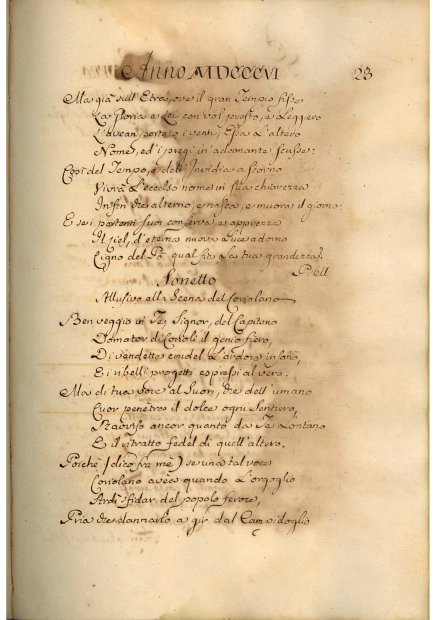 Anno MDCCCVI 23
Ma già sull'Etra, ove il gran Tempio fisse
La Gloria e Lei con vol presto, e leggero
L'avean portato i venti; Essa l'altero
Nome, ed i pregi in adamante scrisse:
Così del Tempo, e dell'Invidia a scorno
Vivrà l'eccelso nome in sua chiarezza
Infin che alterno, e nasca, e muora il giorno:
E se i portenti suoi conserva e apprezza
Il Ciel, d'eterna nuova Luce adorno
Cigno del Pò qual fia la tua grandezza?
Pell
Sonetto
Allusivo alla Scena del Coriolano
Ben veggio in Te, Signor, del Capitano
Domator di Corioli il genio fiero,
Di vendetta crudel l'ardore insano,
E i ribelli progetti espressi al vero.
Ma di tua voce al suon, che dell'umano
Cuor penetra il dolce ogni Sentiero,
Ravviso ancor quanto da Te lontano
È il ritratto fedel di quell'altero.
Poichè (dico fra me) se una tal voce
Coriolano avea quando l'orgoglio
Ardì sfidar del popolo feroce,
Pria che dannarlo a gir dal Campidoglio